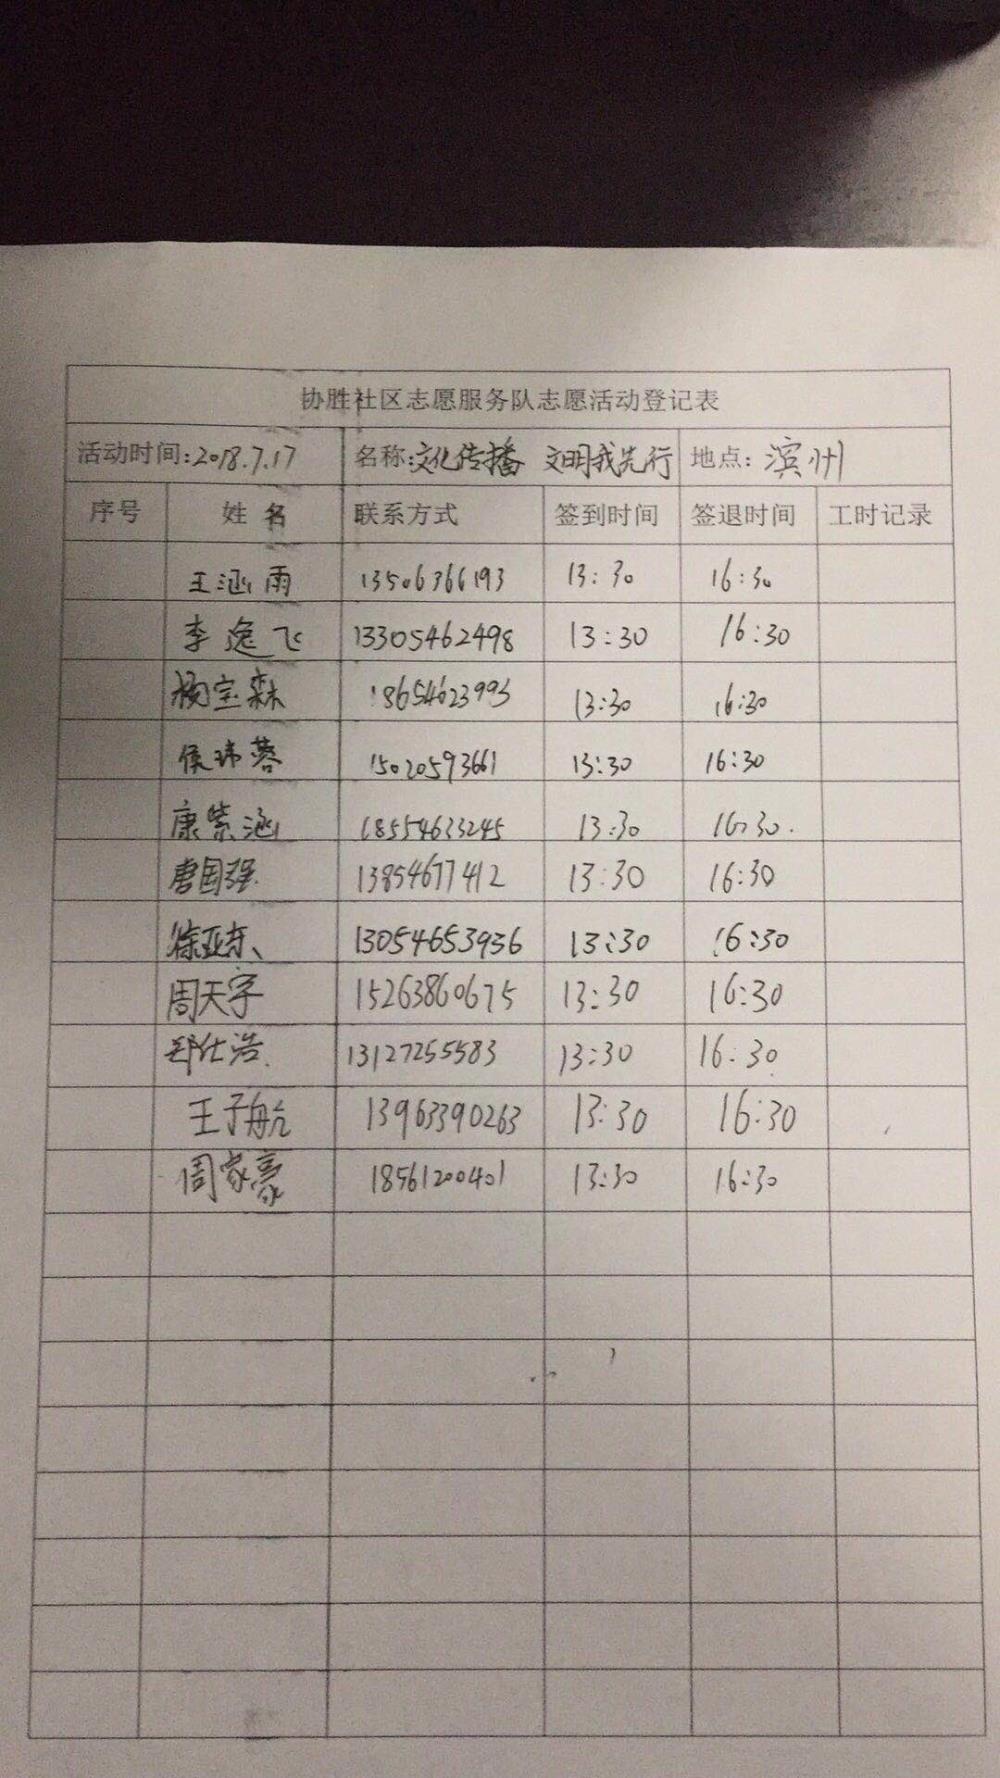 协胜社区志愿服务队志愿活动登记表
活动时间:2018.7.17 名称:文化传播 文明我先行 地点:滨州
序号 姓名 联系方式 签到时间 签退时间 工时记录
王涵雨 13506366193 13:30 16:30
李逸飞 13305462498 13:30 16:30
杨宝森 18654623993 13:30 16:30
侯玮蓉 15020593661 13:30 16:30
康紫涵 18554633245 13:30 16:30.
唐国强. 13854677412 13:30 16:30
徐亚东、 13054653936 13:30 16:30
周天宇 15263860675 13:30 16:30
郑仕浩. 13127255583 13:30 16:30
王子航 13963390263 13:30 16:30
周家豪 18561200401 13:30 16:30